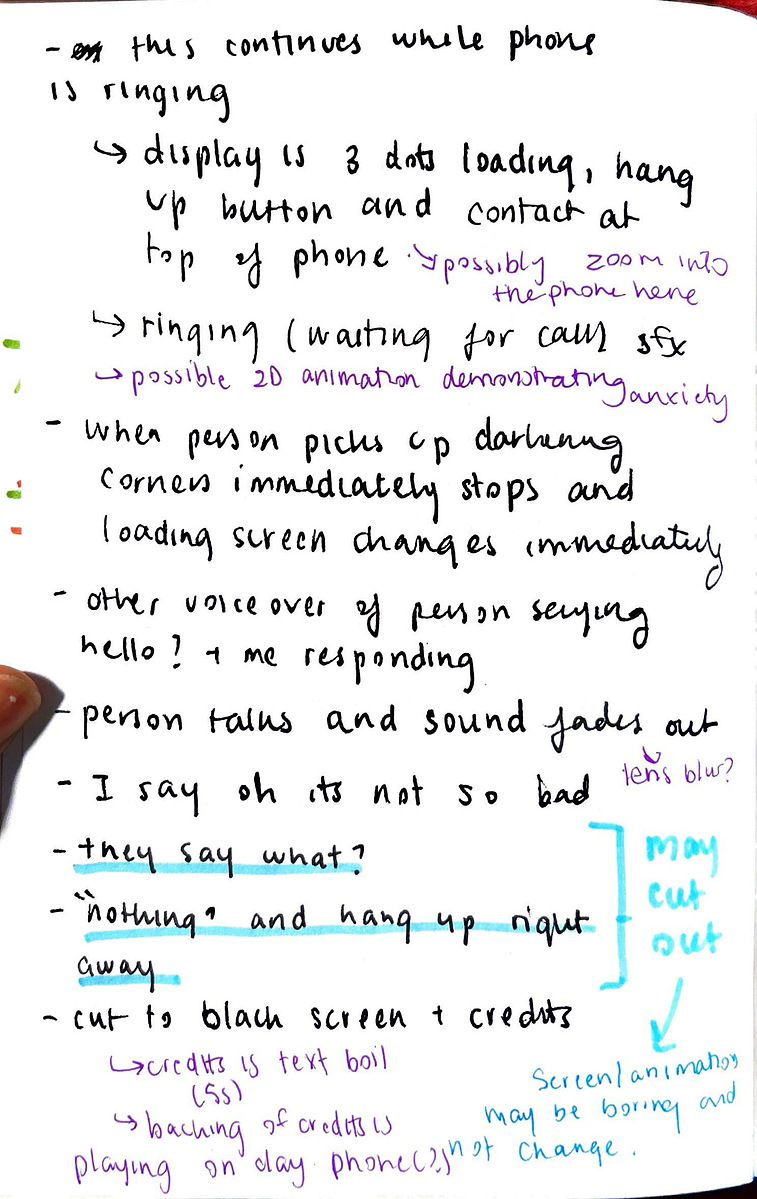 - this continues while phone
is ringing
↳ display is 3 dots loading, hang
up button and contact at
top of phone ↘ possibly zoom into
the phone here
↳ ringing (waiting for call) sfx
→ possible 2D animation demonstrating anxiety
- when person picks up darkening
corners immediately stops and
loading screen changes immediately
- other voice over of person saying
hello? + me responding
- person talks and sound fades out
↳ lens blur?
- I say oh its not so bad
- they say what?
- "nothing" and hang up right
away
may
cut
out
- cut to black screen + credits
↳ credits is text boil
(5s)
↳ backing of credits is
playing on clay phone(?)
Screen/animation
may be boring and
not change.